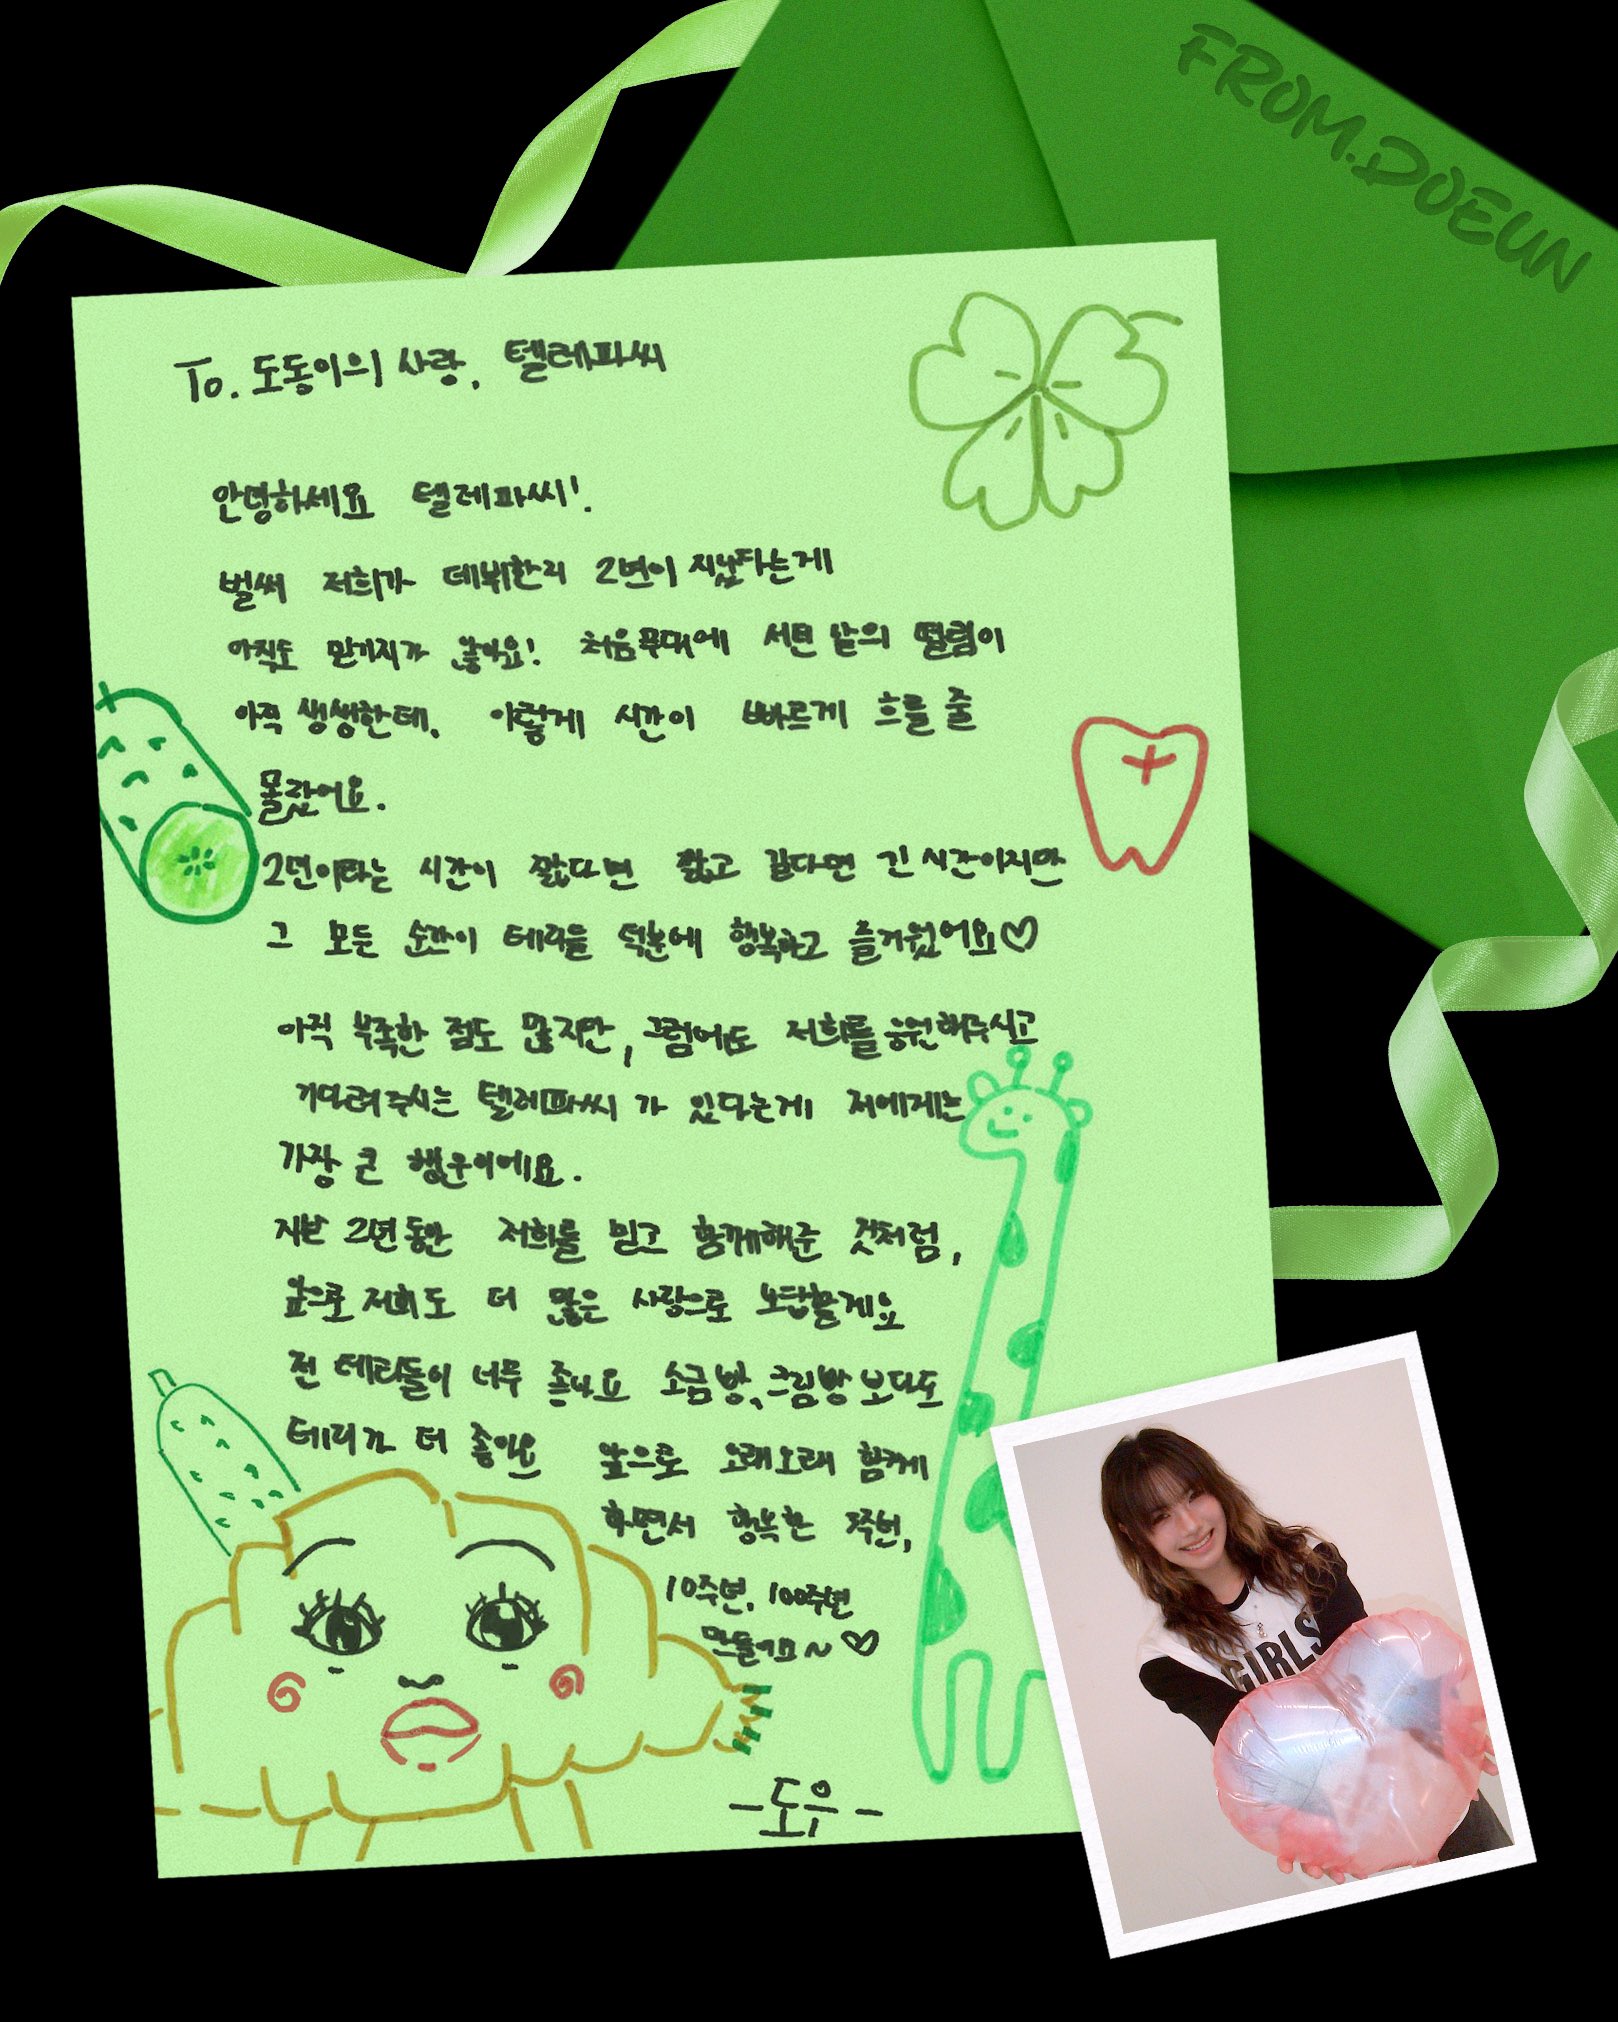 FROM.DOEUN
To. 도동이의 사랑, 텔레파씨
안녕하세요 텔레파씨!
벌써 저희가 데뷔한지 2년이 지났다는게
아직도 믿기지가 않아요! 처음무대에 서던 날의 떨림이
아직 생생한데. 이렇게 시간이 빠르게 흐를 줄
몰랐어요.
2년이라는 시간이 짧다면 짧고 길다면 긴 시간이지만
그 모든 순간이 테리들 덕분에 행복하고 즐거웠어요♡
아직 부족한 점도 많지만, 그럼에도 저희를 응원해주시고
기다려주시는 텔레파씨가 있다는게 저에게는
가장 큰 행운이에요.
지난 2년동안 저희를 믿고 함께해준 것처럼,
앞으로 저희도 더 많은 사랑으로 보답할게요
전 테리들이 너무 좋아요 소금빵, 크림빵보다도
테리가 더 좋아요 앞으로 오래오래 함께
하면서 행복한 주년,
10주년, 100주년
만들어요~♡
GIRLS
-도은-